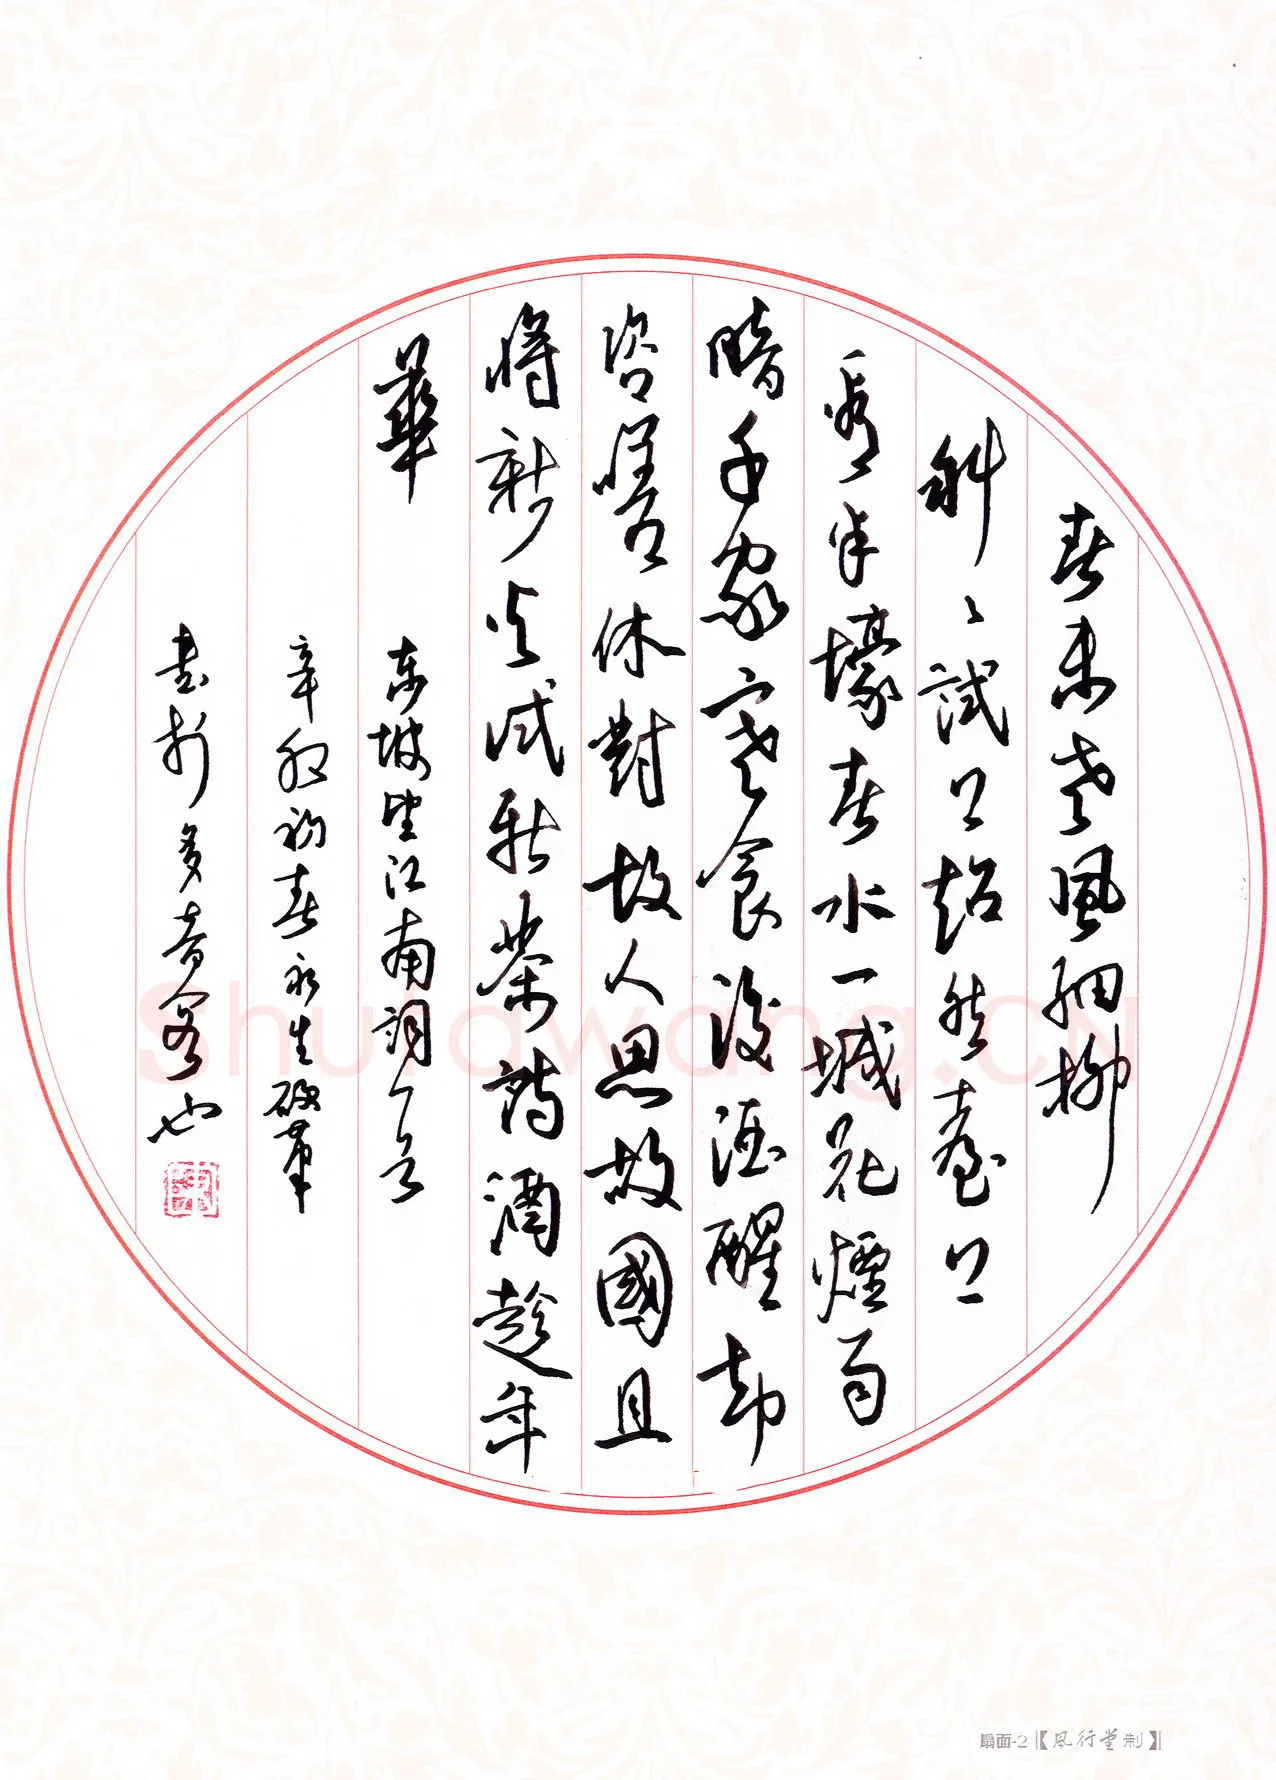 春未老風細柳
斜〻試上超然臺上
看半壕春水一城花煙雨
暗千家寒食後酒醒却
咨嗟休對故人思故國且
將新火試新茶詩酒趁年
華
东坡望江南詞一首
辛卯初春永生破筆
書於多
Shufawang.CN
扇面-2【風行堂制】